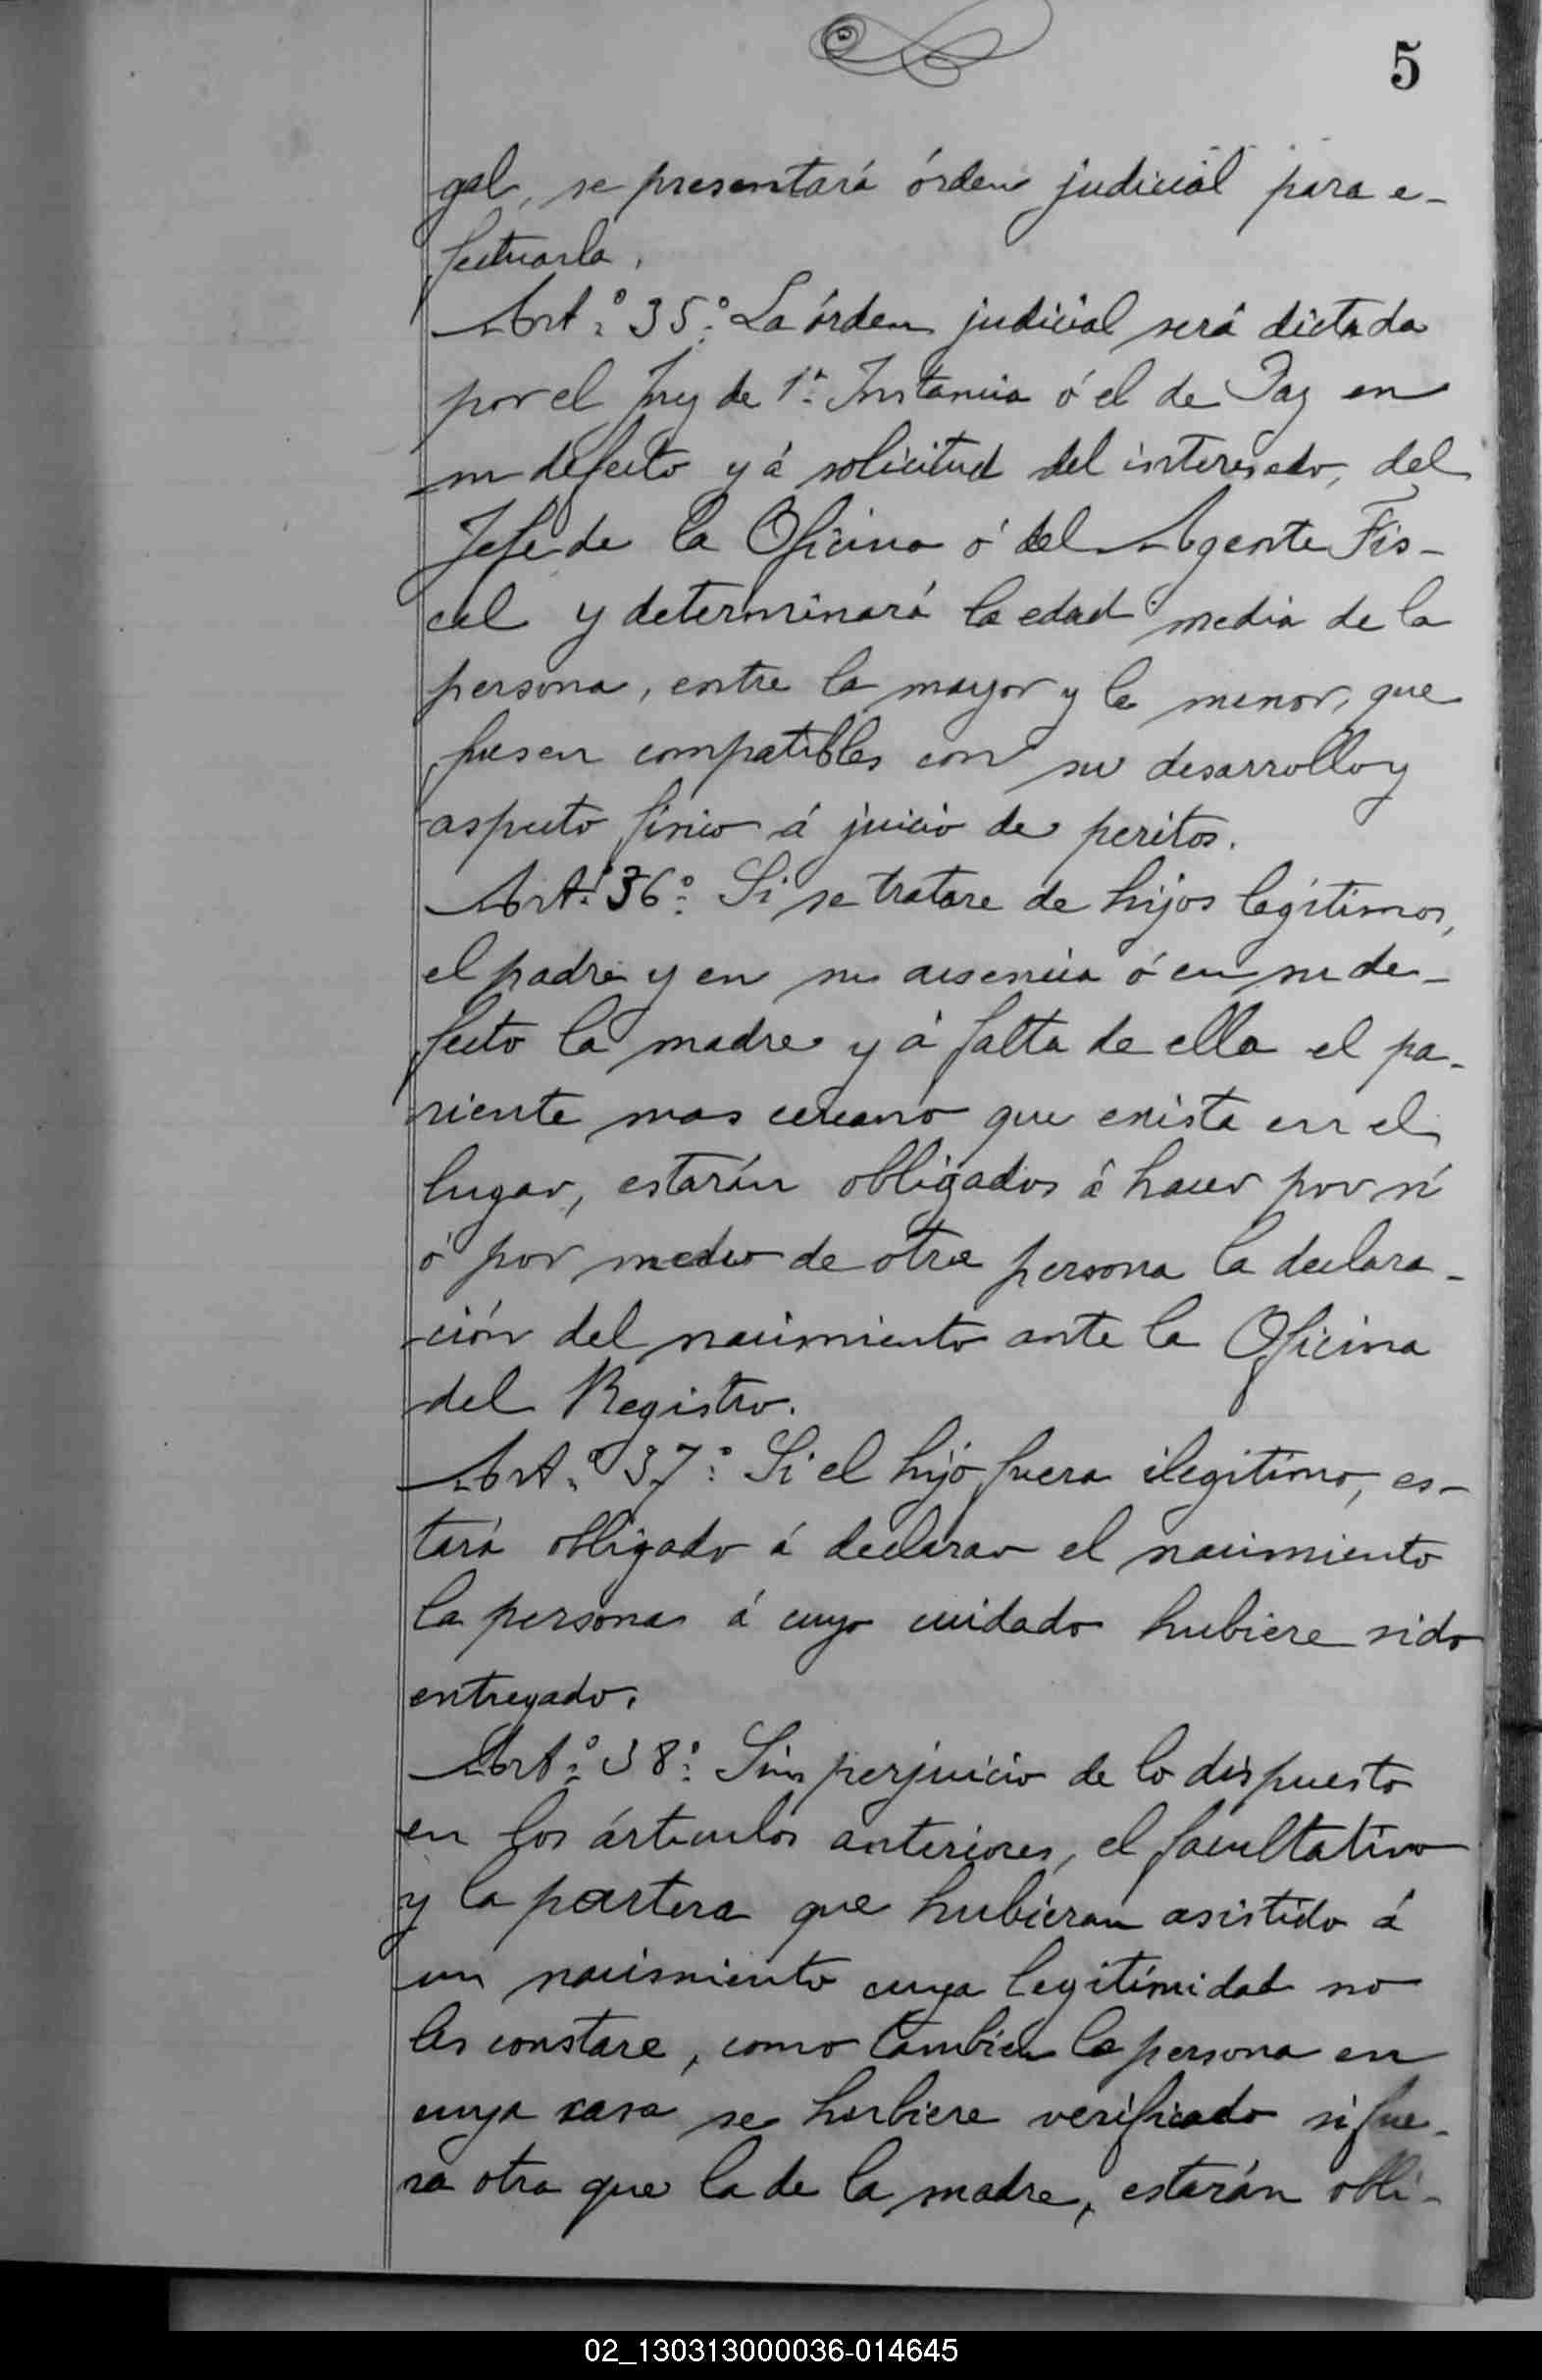 5
gal, se presentará órden judicial para e-
fectuarla.
Art.º 35.º La órden judicial será dictada
por el Juez de 1.ª Instancia ó el de Paz en
su defecto y á solicitud del interesado, del
Jefe de la Oficina ó del Agente Fis-
cal y determinará la edad media de la
persona, entre la mayor y la menor, que
fuesen compatibles con su desarrollo y
aspecto físico á juicio de peritos.
Art.º 36.º Si se tratare de hijos legítimos,
el padre y en su ausencia ó en su de-
fecto la madre y á falta de ella el pa-
riente mas cercano que exista en el
lugar, estarán obligados á hacer por sí
ó por medio de otra persona la declara-
ción del nacimiento ante la Oficina
del Registro.
Art.º 37.º Si el hijo fuera ilegítimo, es-
tará obligado á declarar el nacimiento
la persona á cuyo cuidado hubiere sido
entregado.
Art.º 38.º Sin perjuicio de lo dispuesto
en los ártículos anteriores, el facultativo
y la partera que hubieran asistido á
un nacimiento cuya legitimidad no
les constare, como tambien la persona en
cuya casa se hubiere verificado si fue-
ra otra que la de la madre, estarán obli-
02_130313000036-014645